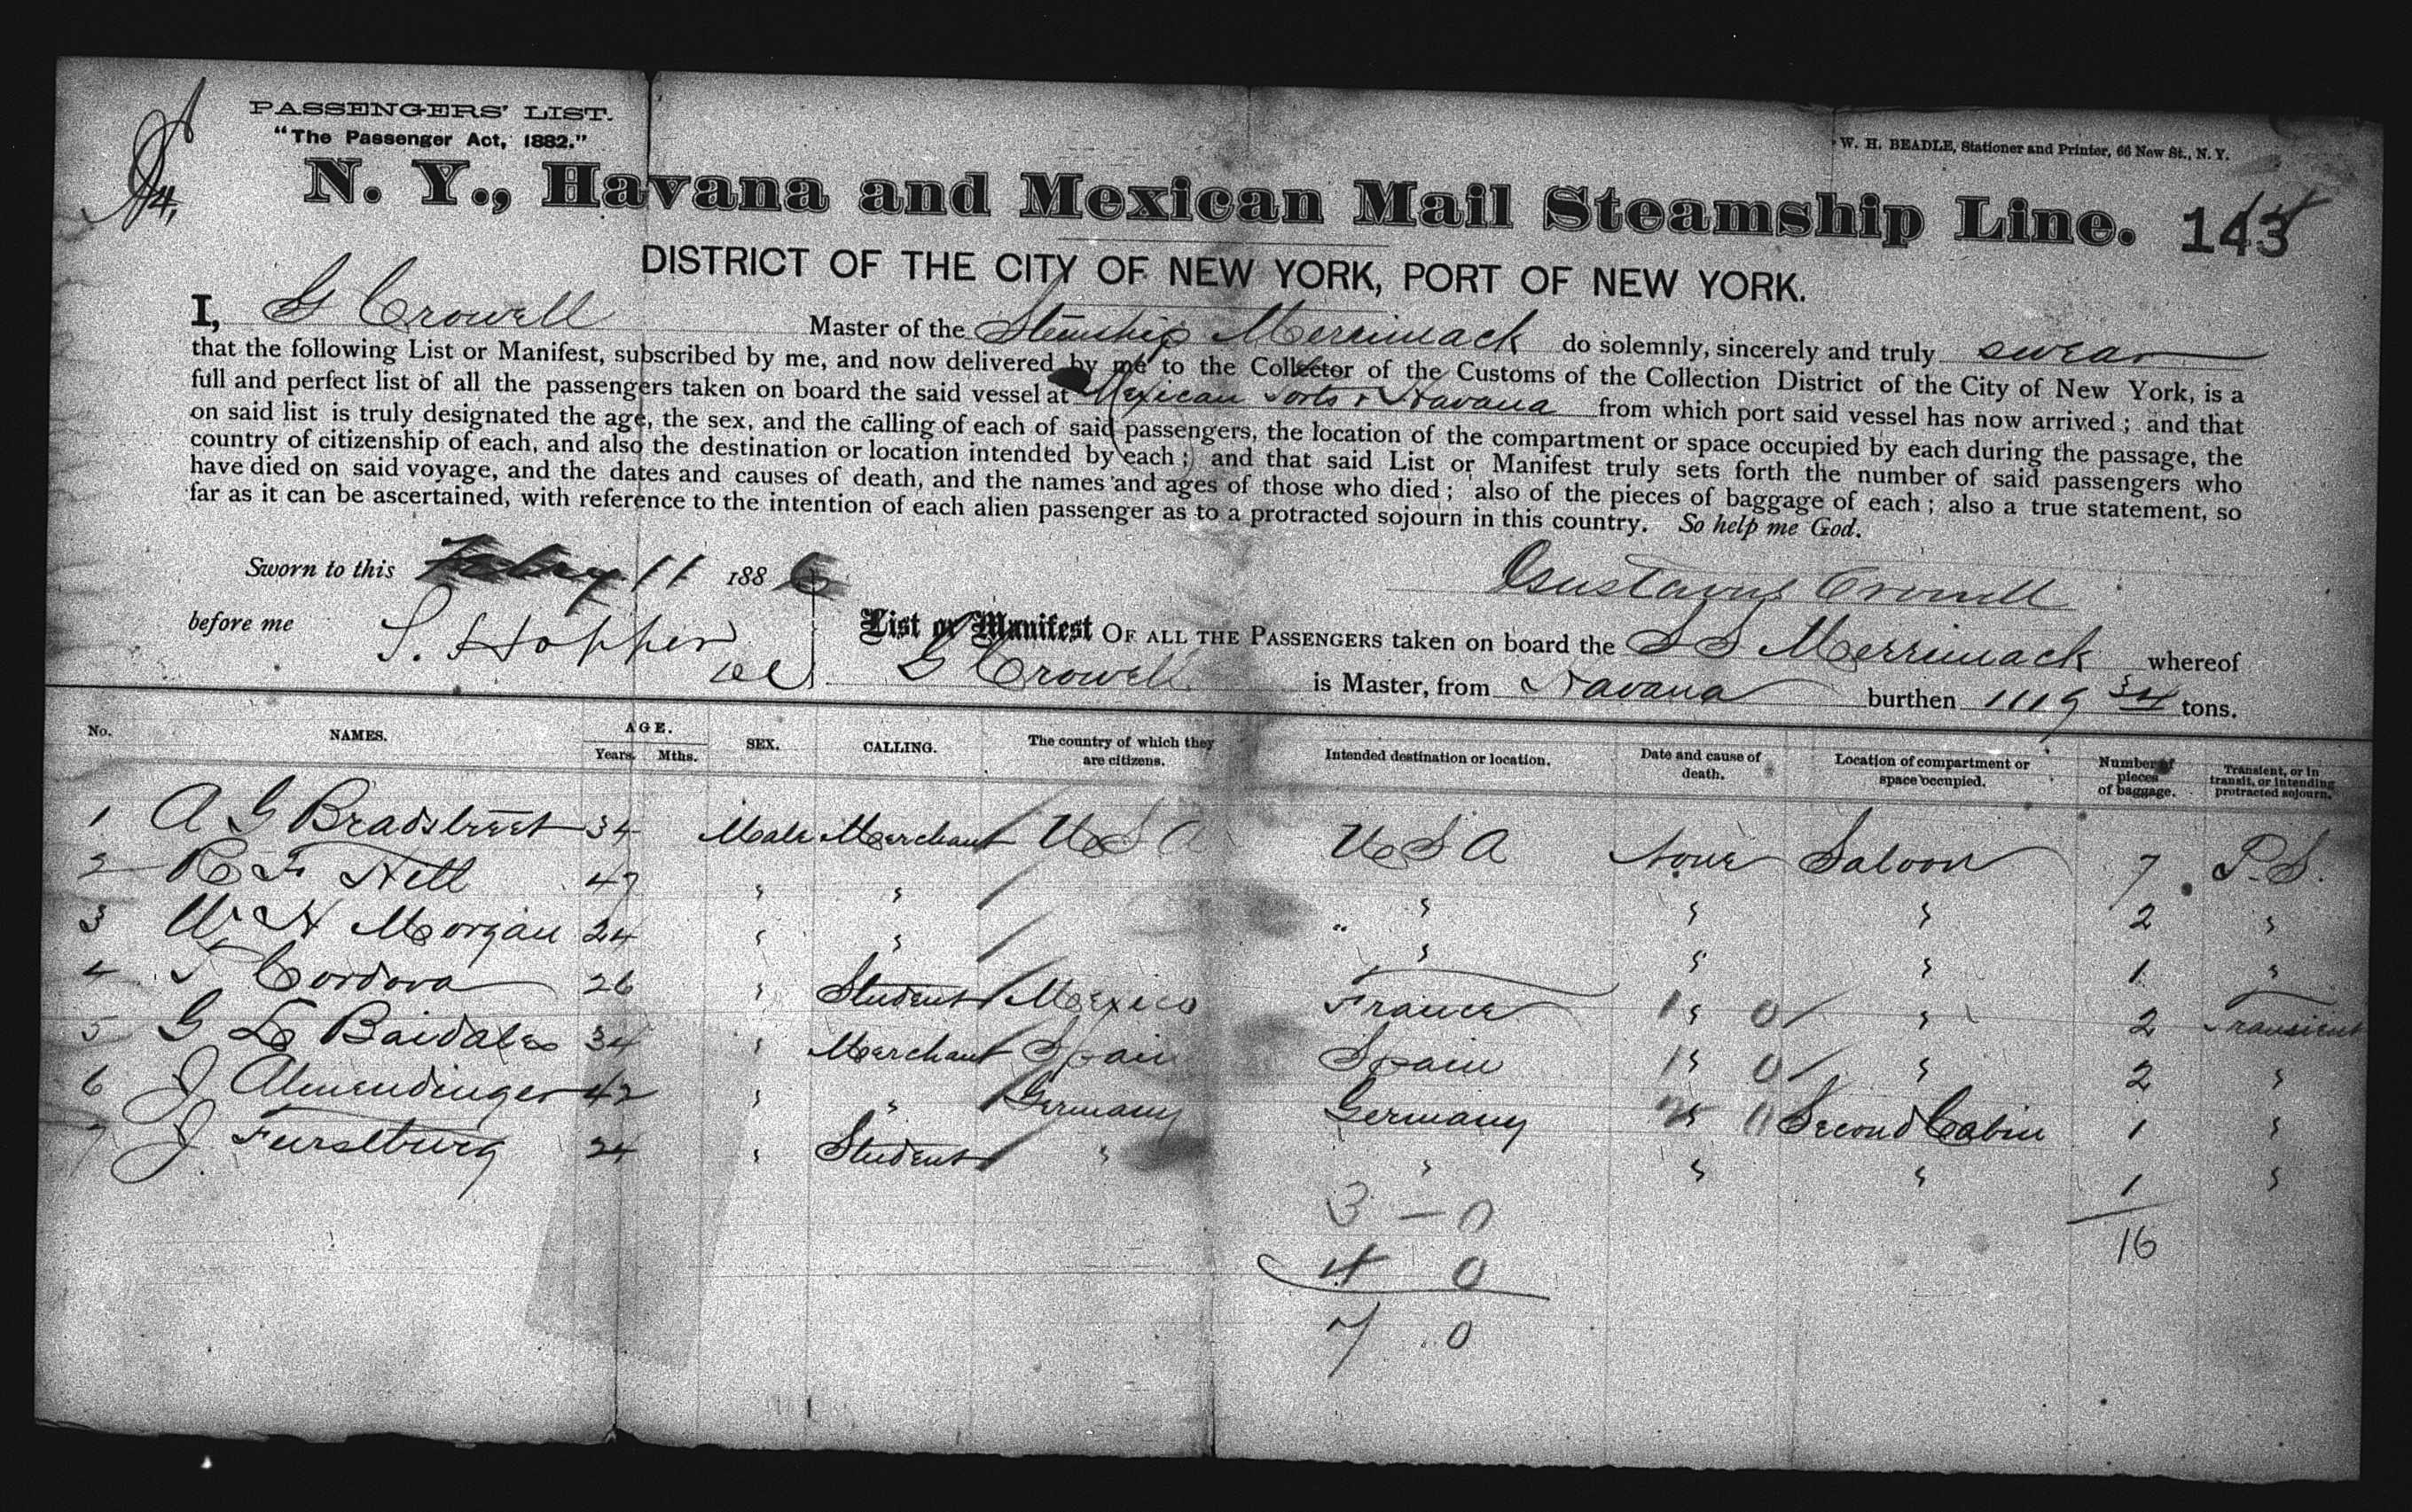 PASSENGERS' LIST.
"The Passenger Act, 1882."
W. H. BEADLE, Stationer and Printer, 66 New St., N. Y.
N. Y., Havana and Mexican Mail Steamship Line. 143
DISTRICT OF THE CITY OF NEW YORK, PORT OF NEW YORK.
I, G Crowell Master of the Steamship Merrimack do solemnly, sincerely and truly swear
that the following List or Manifest, subscribed by me, and now delivered by me to the Collector of the Customs of the Collection District of the City of New York, is a
full and perfect list of all the passengers taken on board the said vessel at Mexican Ports & Havana from which port said vessel has now arrived; and that
on said list is truly designated the age, the sex, and the calling of each of said passengers, the location of the compartment or space occupied by each during the passage, the
country of citizenship of each, and also the destination or location intended by each; and that said List or Manifest truly sets forth the number of said passengers who
have died on said voyage, and the dates and causes of death, and the names and ages of those who died; also of the pieces of baggage of each; also a true statement, so
far as it can be ascertained, with reference to the intention of each alien passenger as to a protracted sojourn in this country. So help me God.
Sworn to this Feby 11 1886 Gustavus Crowell
before me S. Hopper
List or Manifest OF ALL THE PASSENGERS taken on board the S S Merrimack whereof
G Crowell is Master, from Havana burthen 1119 34 tons.
No. NAMES. AGE. Years. Mths. SEX. CALLING. The country of which they are citizens. Intended destination or location. Date and cause of death. Location of compartment or space occupied. Number of pieces of baggage. Transient, or in transit, or intending protracted sojourn.
1 A G Bradstreet 34 Male Merchant U S A U S A None Saloon 7 P. S.
2 R F Nett 47 " " " " " 2 "
3 W H Morgan 24 " " " " " 1 "
4 T Cordova 26 " Student Mexico France " " 2 Transient
5 G L Baidales 34 " Merchant Spain Spain " " 2 "
6 J Almendinger 42 " " Germany Germany " Second Cabin 1 "
7 J Furstburg 24 " Student " " " " 1 "
3 - 0
16
4 0
7 0